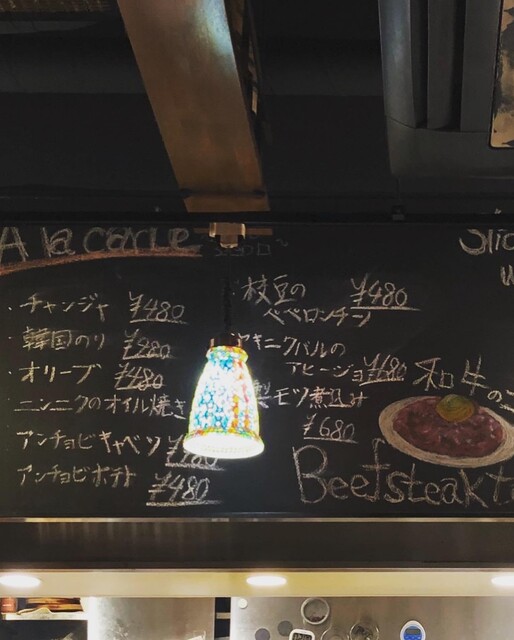 A la carte
・チャンジャ ¥480
・韓国のり ¥280
・オリーブ ¥480
ニンニクのオイル焼き
アンチョビキャベツ ¥480
アンチョビポテト ¥480
枝豆の ¥480
ペペロンチーノ
ヤキニクバルの
アヒージョ ¥480
製モツ煮込み
¥680
和牛の
Beefsteak